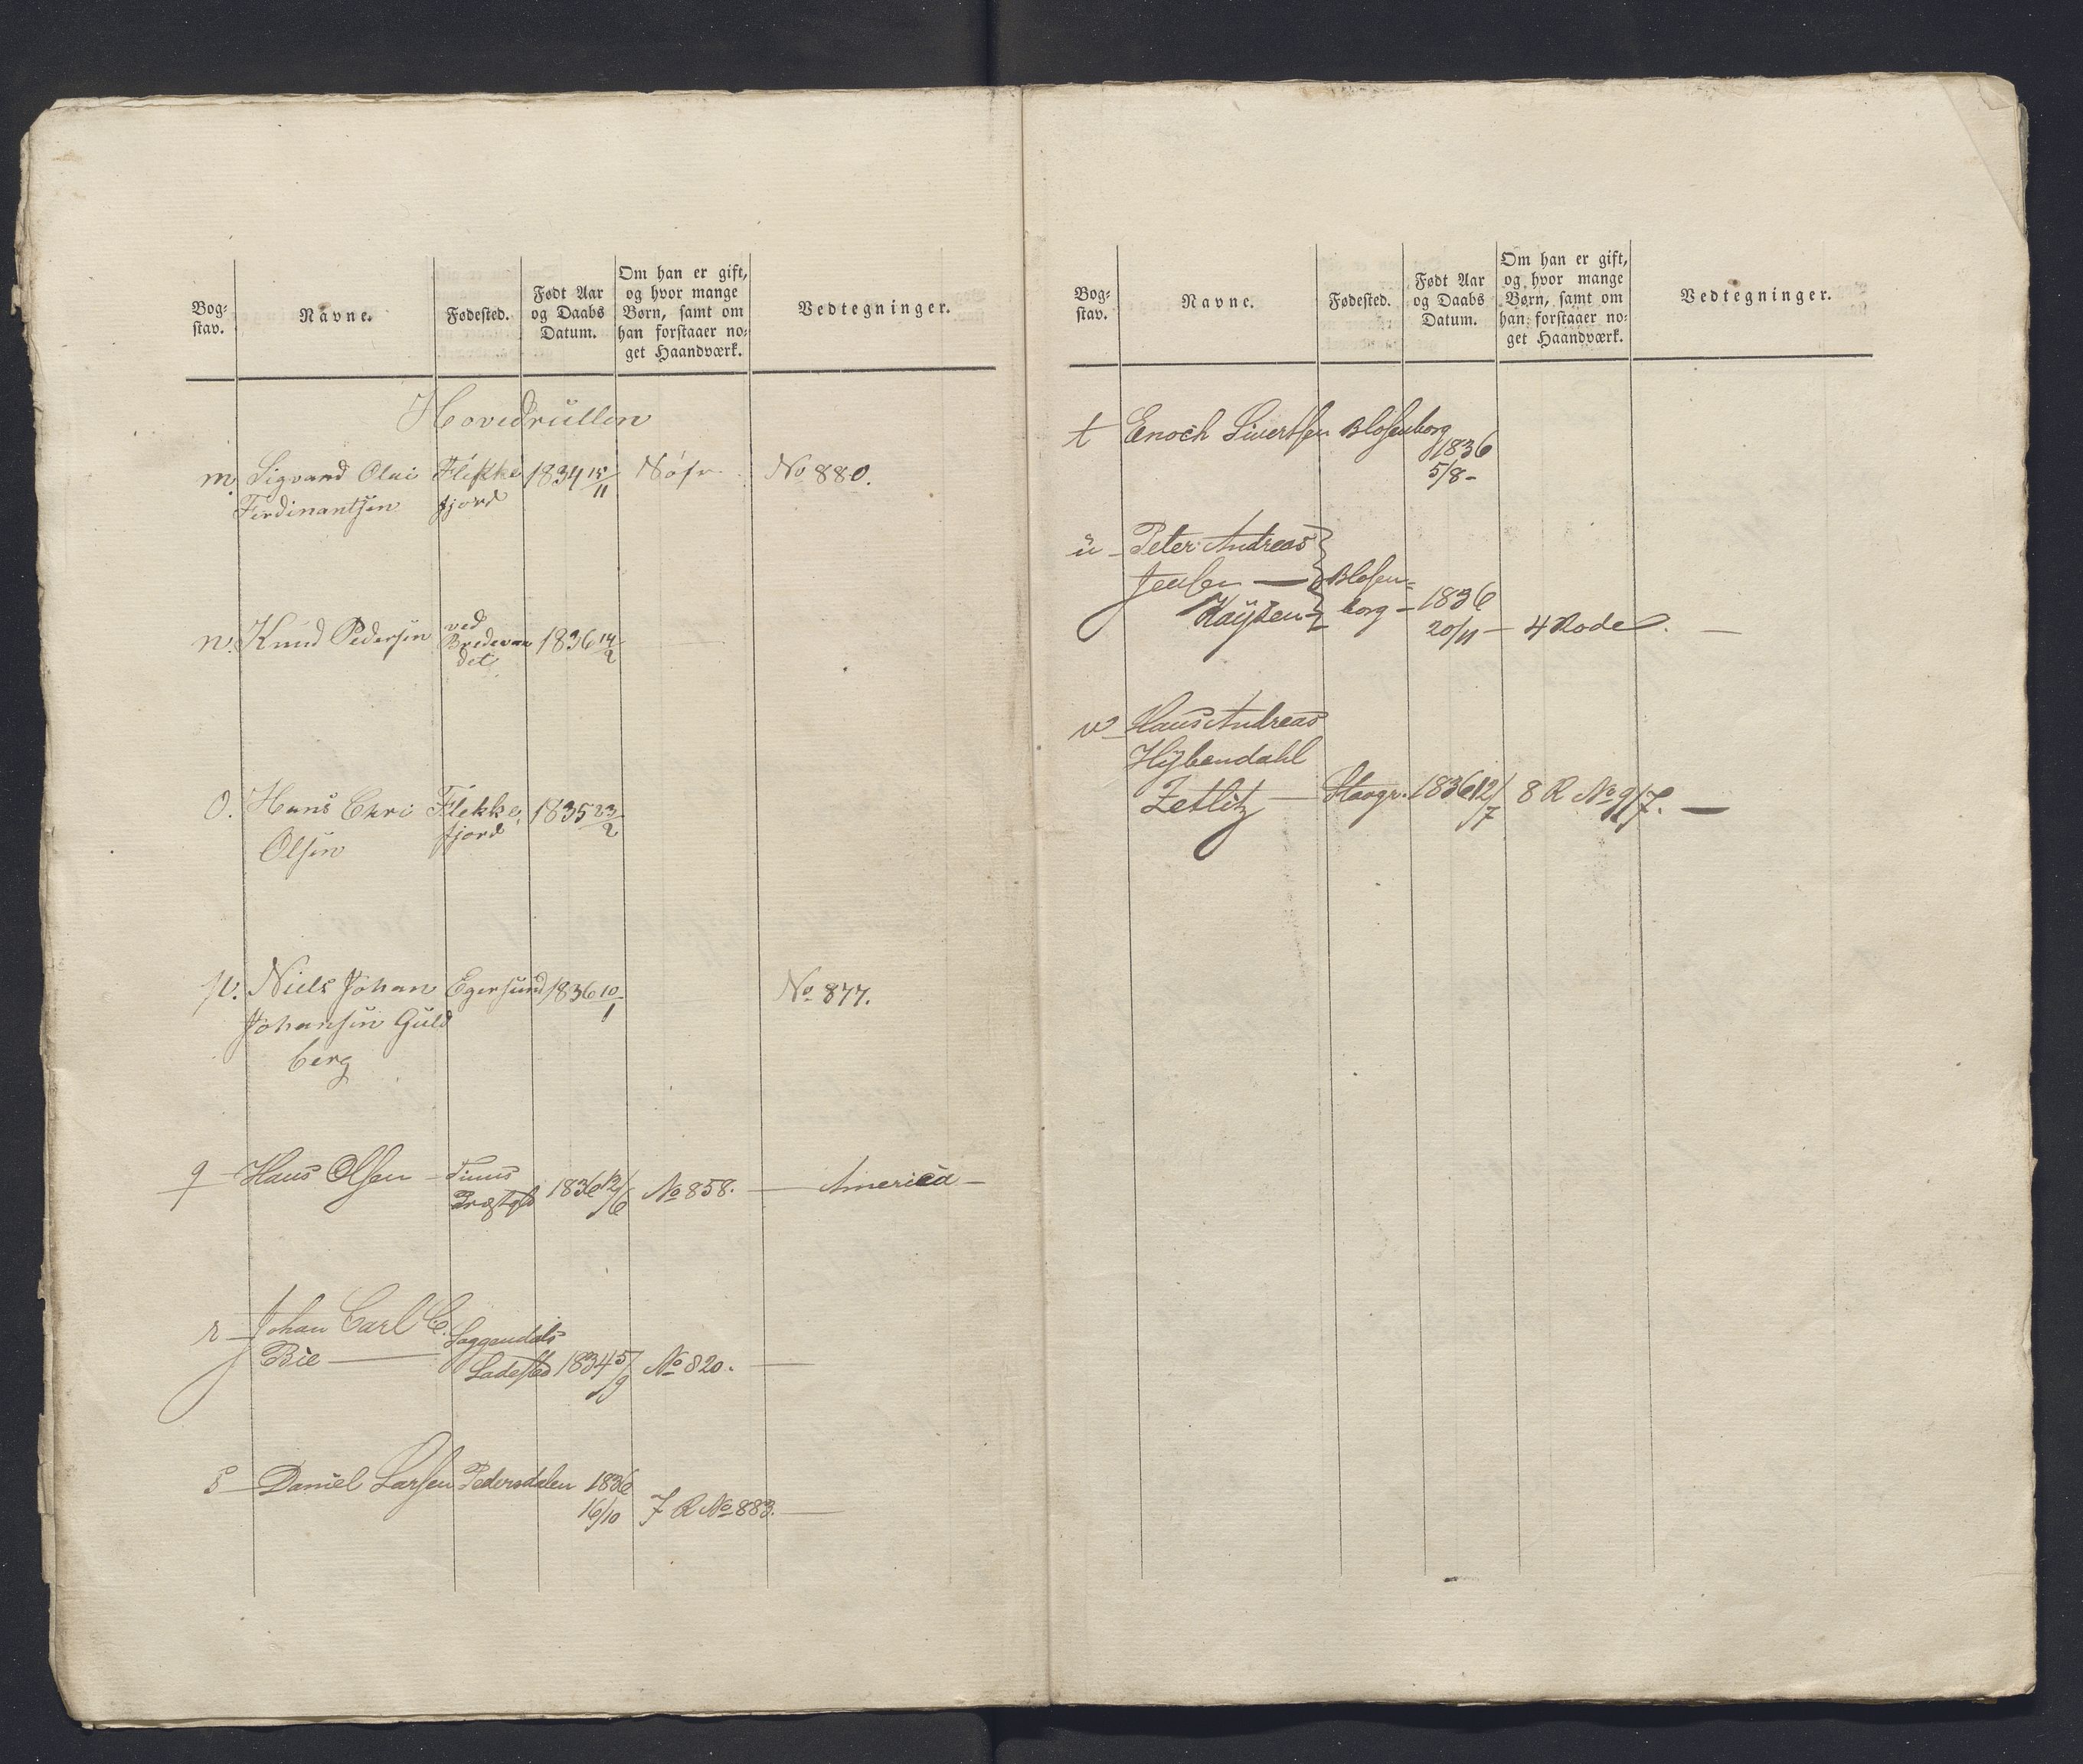 Bog=
stav.
Navne.
Fødested.
Født Aar
og Daabs
Datum.
Om han er gift,
og hvor mange
Børn, samt om
han forstaaer no=
get Haandværk.
Vedtegninger.
Hovedrullen
m. Sigvand Olai Flekke 1834 15/11 No 880.
Ferdinantsen fjord
n. Knud Pedersen ved Bredevan 1836 14/2
det
o. Hans Chri Flekke 1835 23/2
Olsen fjord
p. Niels Johan Egersund 1836 10/1 No 877.
Johansen Guld
berg
q – Hans Olsen – Finnø
Præstgld 1836 12/6 No 858. — America –
r – Johan Carl C. Soggendals
Bie — Ladested 1834 5/9 No 820. —
s – Daniel Larsen Pedersdalen 1836
16/10 7 R No 883. —
Bog=
stav.
Navne.
Fødested.
Født Aar
og Daabs
Datum.
Om han er gift,
og hvor mange
Børn, samt om
han forstaaer no=
get Haandværk.
Vedtegninger.
t Enoch Sivertsen Blosenborg
1836
5/8 –
u – Peter Andreas
Jensen — Blosen=
Høysten – borg – 1836
20/11 – 4 Rode. —
v – Hans Andreas
Hybendahl
Zetlitz — Stavgr. 1836 12/7 8 R No 917. —